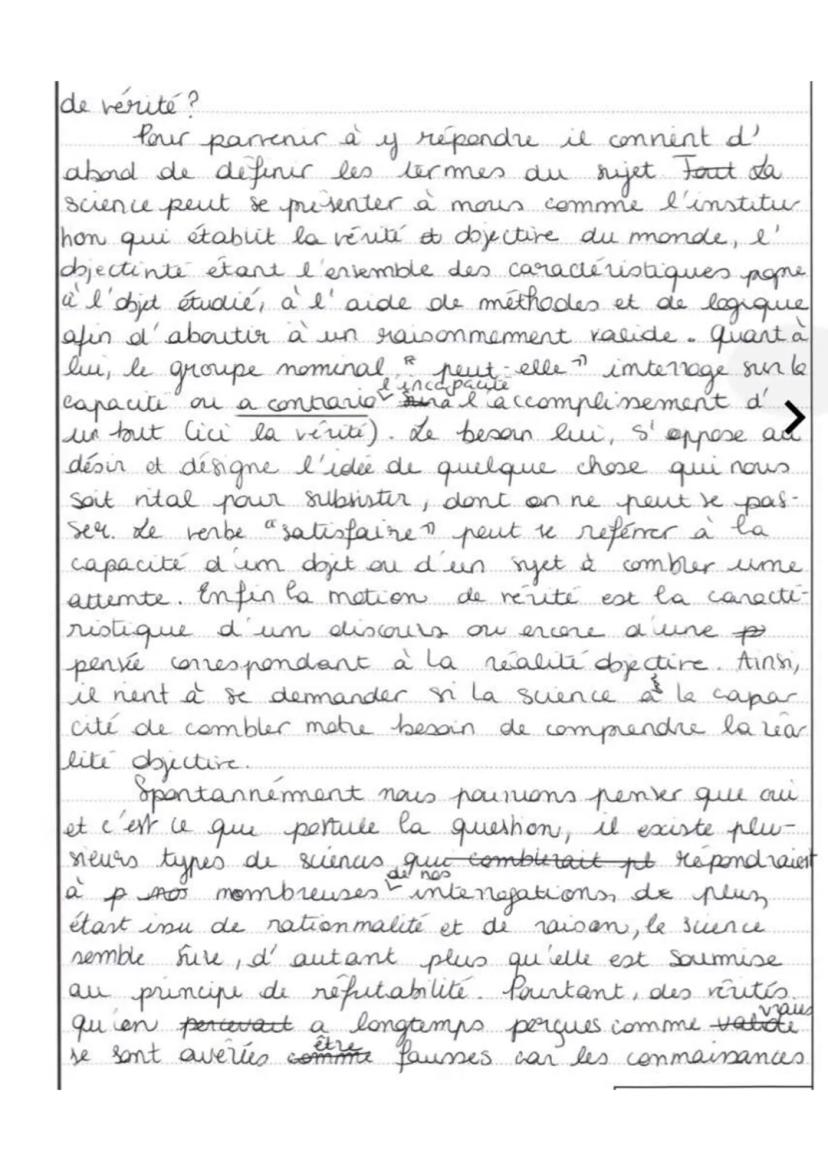 de vérité ?
Pour parvenir à y répondre il convient d'
abord de définir les termes du sujet Tout La
science peut se présenter à nous comme l'institu
tion qui établit la vérité et objective du monde, l'
objectivité étant l'ensemble des caractéristiques propre
à l'objet étudié, à l'aide de méthodes et de logique
afin d'aboutir à un raisonnement valide. Quant à
lui, le groupe nominal "peut-elle" interroge sur la
capacité ou a contrario l'incapacité à l'accomplissement d'
un tout (ici la vérité). Le besoin lui, s'oppose au
désir et désigne l'idée de quelque chose qui nous
soit vital pour subsister, dont on ne peut se pas-
ser. Le verbe "satisfaire" peut se référer à la
capacité d'un objet ou d'un sujet à combler une
attente. Enfin la notion de vérité est la caracté-
ristique d'un discours ou encore d'une p
pensée correspondant à la réalité objective. Ainsi,
il vient à se demander si la science a la capa
cité de combler notre besoin de comprendre la réa
lité objective.
Spontannément nous pourrions penser que oui
et c'est ce que postule la question, il existe plu-
sieurs types de sciences qui comblerait pl répondraient
à p nos nombreuses de nos interrogations, de plus,
étant issu de rationnalité et de raison, la science
semble sure, d'autant plus qu'elle est soumise
au principe de réfutabilité. Pourtant, des vérités
qu'on percevait a longtemps perçues comme valide vraies
se sont avérées comme être fausses car les connaissances